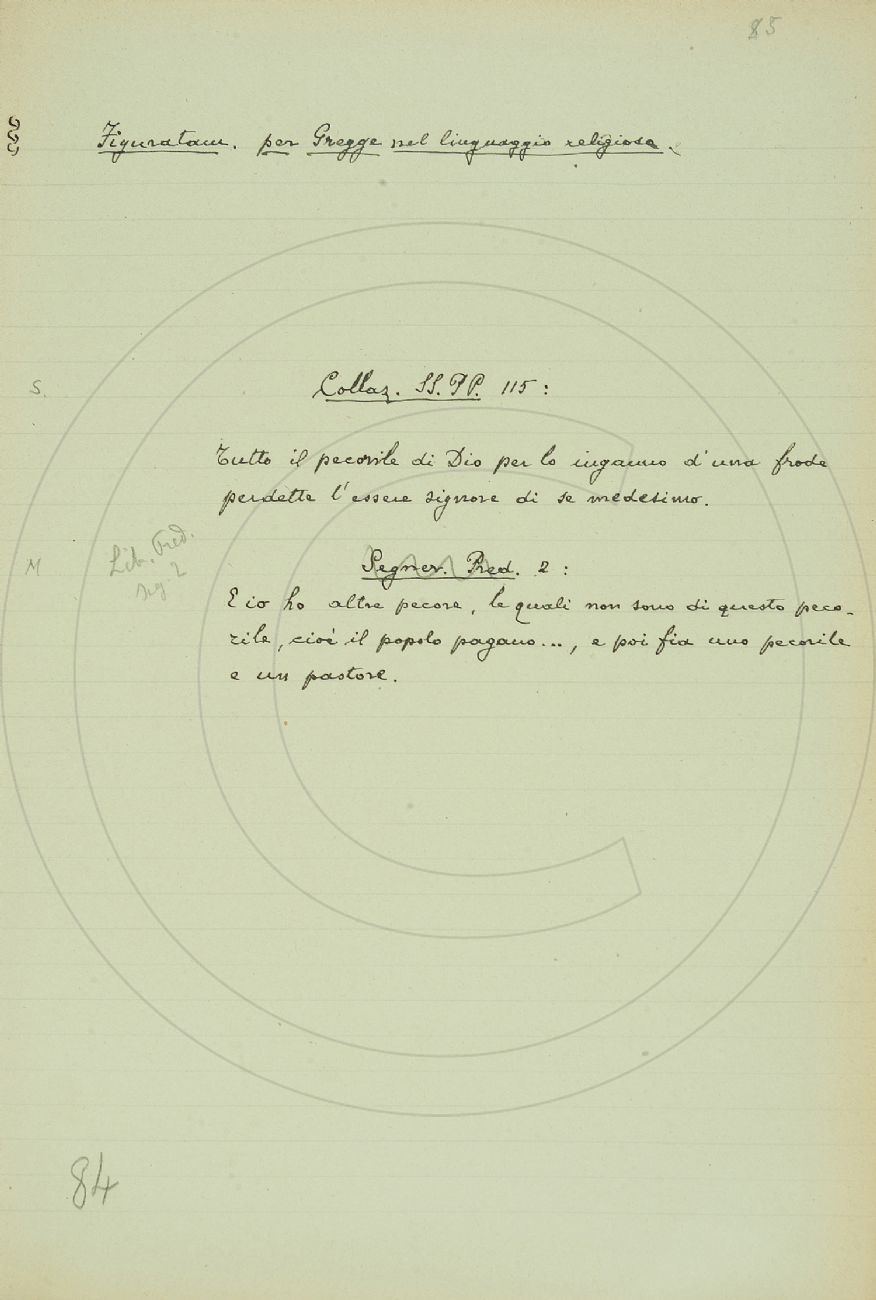 85
§
Figuratam. per Gregge nel linguaggio religioso.
S.
Collaz. SS. PP. 115:
Tutto il pecorile di Dio per lo inganno d'una frode
perdette l'essere signore di se medesimo.
M
Lib. Pred.
Segner. Pred. 2:
E io ho altre pecore, le quali non sono di questo peco-
rile, cioè il popolo pagano..., e poi fia uno pecorile
e un pastore.
84